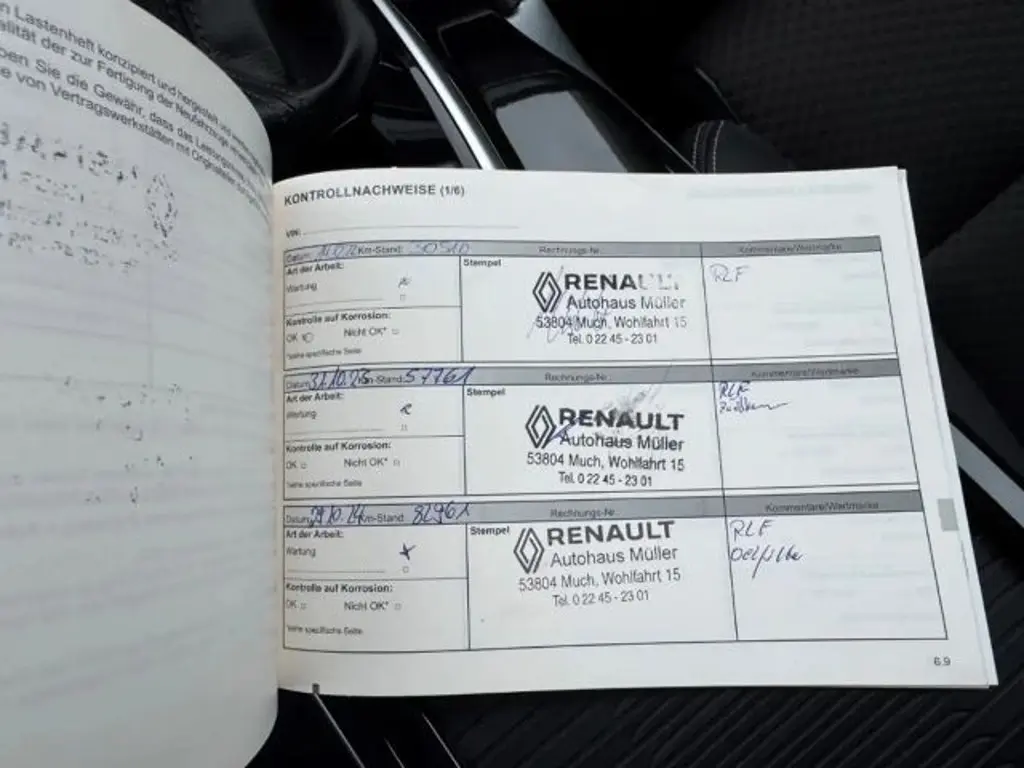 n Lastenheft konzipiert und hergestellt
alität der zur Fertigung der Neufahrzeuge
ben Sie die Gewähr, dass das
e von Vertragswerkstätten mit
KONTROLLNACHWEISE (1/6)
VIN:
Datum: Km-Stand: 30510 Rechnungs-Nr.: Kommentare/Wertmarke
Art der Arbeit:
Wartung
Kontrolle auf Korrosion:
OK Nicht OK*
*siehe spezifische Seite
Stempel
RENAULT
Autohaus Müller
53804 Much, Wohlfahrt 15
Tel. 0 22 45 - 23 01
RLF
Datum: 31.10.23 Km-Stand: 57761 Rechnungs-Nr.: Kommentare/Wertmarke
Art der Arbeit:
Wartung
Kontrolle auf Korrosion:
OK Nicht OK*
*siehe spezifische Seite
Stempel
RENAULT
Autohaus Müller
53804 Much, Wohlfahrt 15
Tel. 0 22 45 - 23 01
RLF
Datum: 29.10.24 Km-Stand: 82961 Rechnungs-Nr.: Kommentare/Wertmarke
Art der Arbeit:
Wartung
Kontrolle auf Korrosion:
OK Nicht OK*
*siehe spezifische Seite
Stempel
RENAULT
Autohaus Müller
53804 Much, Wohlfahrt 15
Tel. 0 22 45 - 23 01
RLF
Oelfilter
6.9